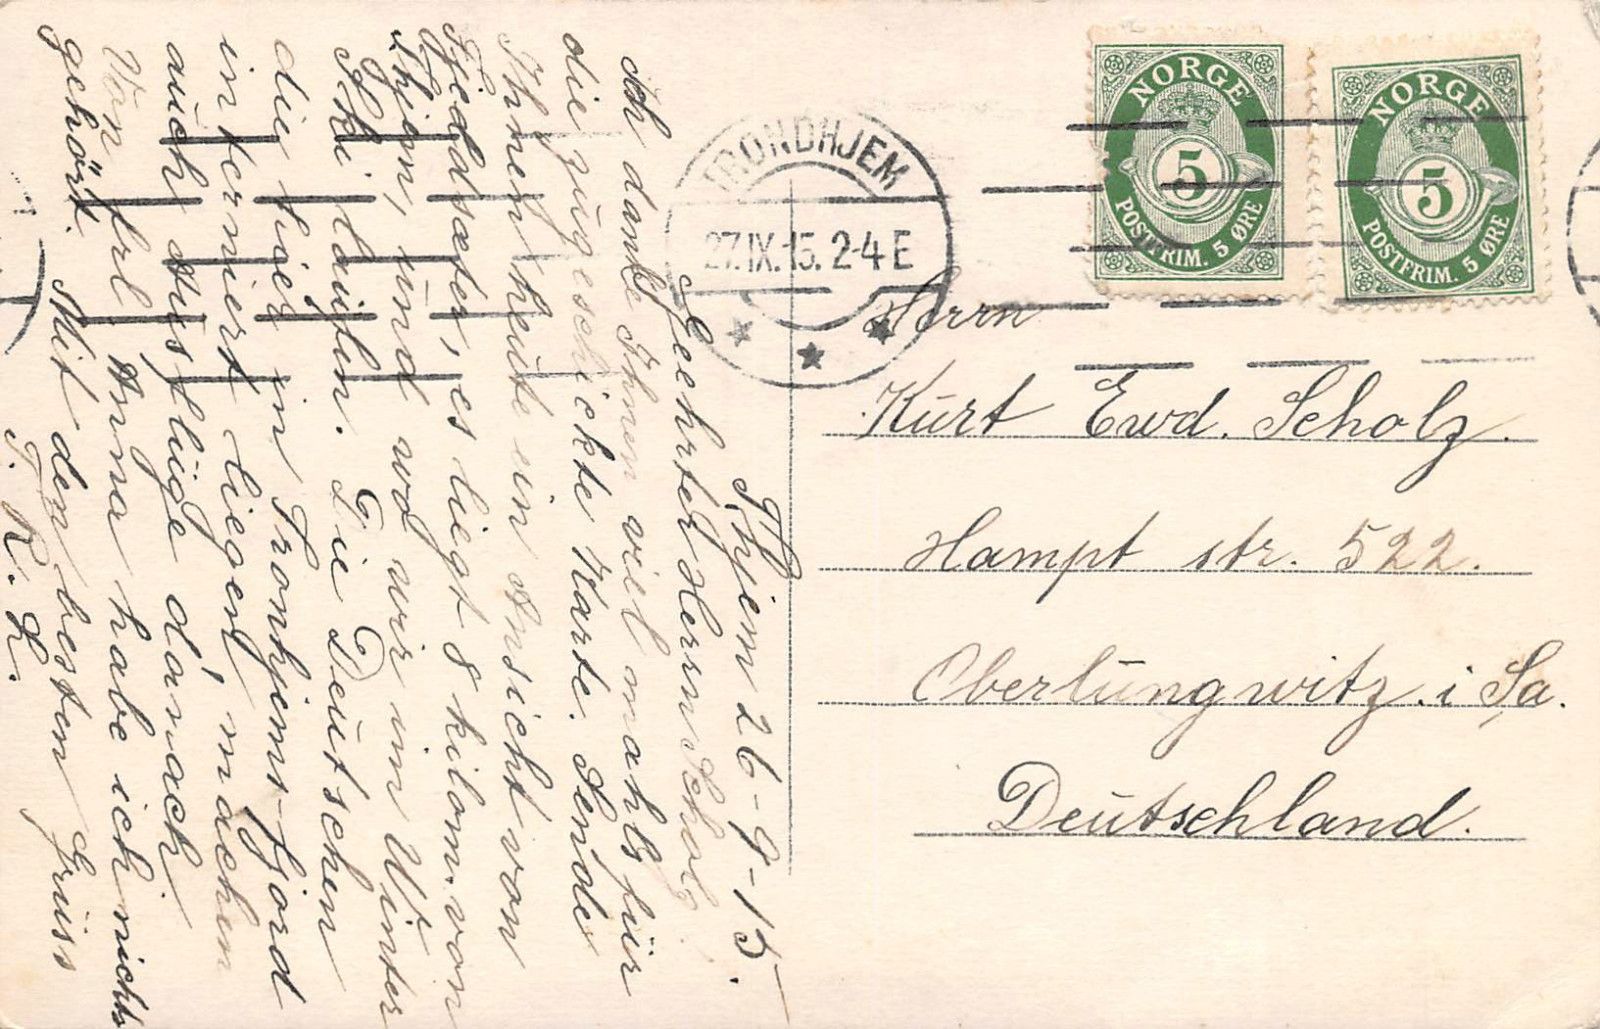 Thjem 26-9-15.
Geehrter Herrn Scholz.
Ich danke Ihnen viel mahls für
die zugeschickte Karte. Sende
Ihnen heute ein Ansicht von
Fjeldsæter, es liegt 8 kilom. von
Thjem, und wo wir im Winter
Ski laufen. Die Deutschen
die hier in Tronhjems-fjord
interniert liegen, machen
auch Ausflüge da'nach.
Von Frl Anna habe ich nichts
gehört. Mit den besten Grüss
R. L.
TRONDHJEM
27.IX.15. 2-4 E
NORGE
5
POSTFRIM. 5 ØRE
NORGE
5
POSTFRIM. 5 ØRE
Herrn
Kurt Ewd. Scholz.
Hampt str. 522.
Oberlungwitz. i Sa.
Deutschland.